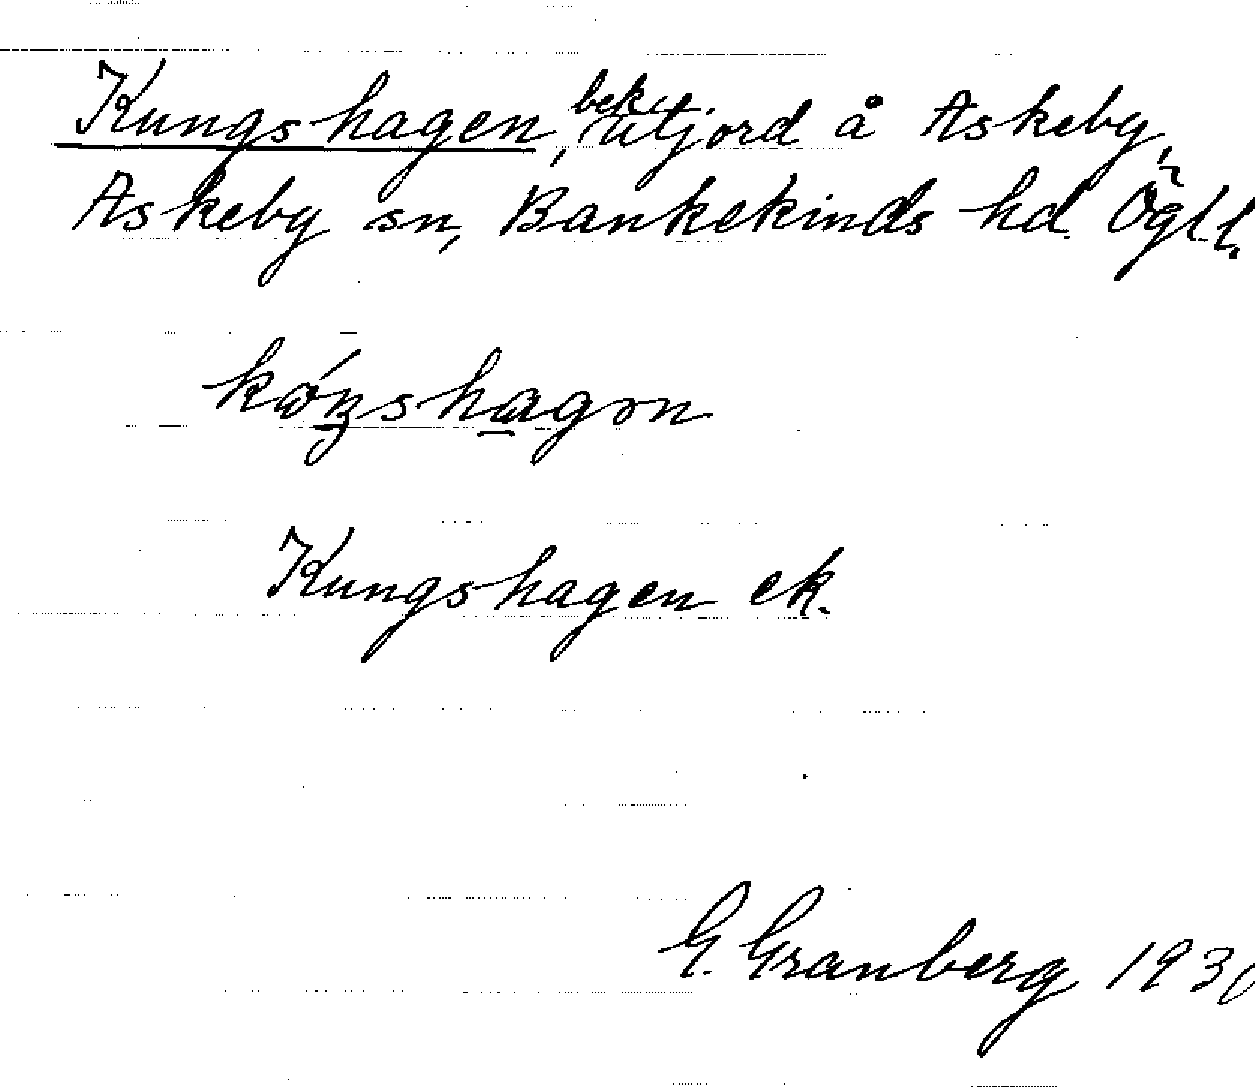 Kungshagen, bek. utjord å Askeby,
Askeby sn, Bankekinds hd. Ögll.
Kungshagen ek.
G. Granberg 1930